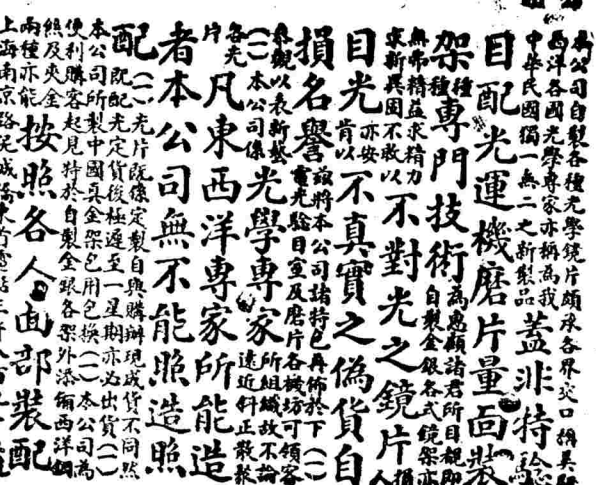 本公司自製各種光學鏡片頗承各界交口稱美
西洋各國光學專家亦稱為我
中華民國獨一無二之新製品
蓋非特
目配光運機磨片量面裝
架
種種
專門技術
為惠顧諸君所目覩即
自製金銀各式鏡架亦
無弗精益求精力
求新異固不敢以
不對光之鏡片
損
人
目光
亦安
肯以
不真實之偽貨自
損名譽
茲將本公司諸特色再佈於下(一)
電光驗目室及磨片各機坊可領客
參觀以表新藝
(一)本公司係
光學專家
所組織故不論
遠近斜正散聚
各光
片
凡東西洋專家所能造
者本公司無不能照造照
配
(一)光片既係定製自與購辦現成貨不同然
既配光定貨後極遲至一星期亦必出貨(一)
本公司所製中國真金架包用包換(一)本公司為
便利購客起見特於自製金銀各架外添備西洋鋼
絲及夾金
兩種亦能
按照各人面部裝配
上海南京路